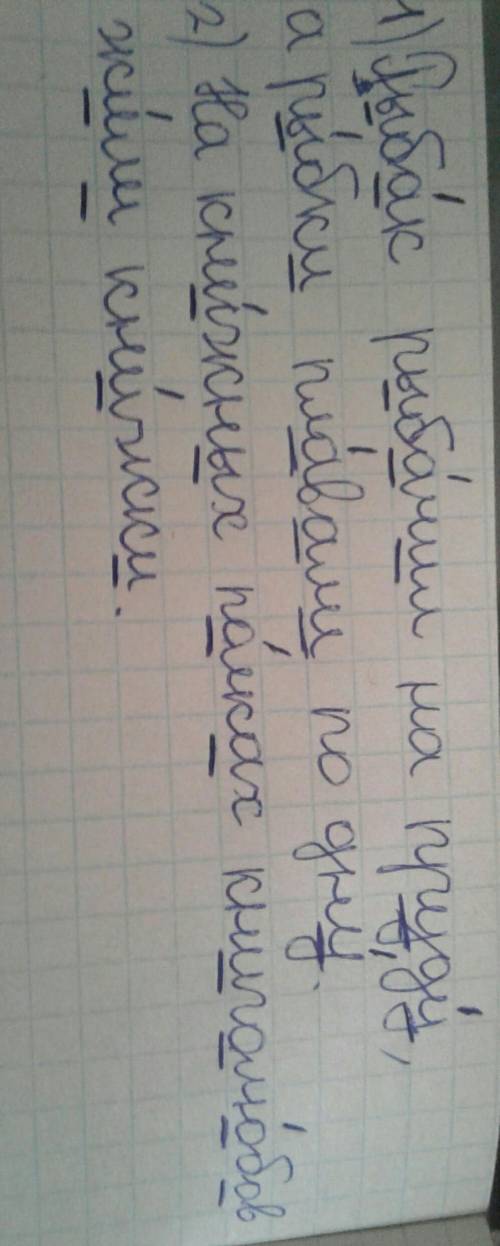 1) Рыба́к рыба́чил на пруду́,
а ры́бки пла́вали по дну.
2) На кни́жных па́лках книголю́бов
жи́ли кни́жки.